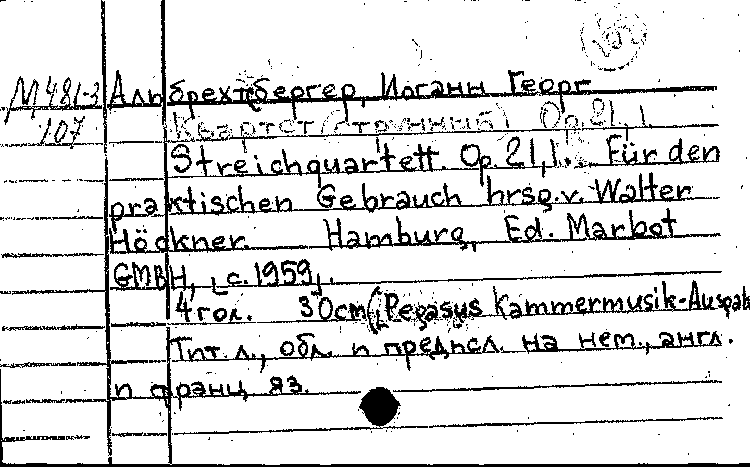 М481-3 Альбрехтсбергер, Иоганн Георг
107 Квартет (струнный) Op. 21, 1.
Streichquartett. Op. 21,1. Für den
praktischen Gebrauch hrsg. v. Walter
Höckner. Hamburg, Ed. Marbot
GMBH, [c. 1959].
4 гол. 30cm (Pegasus Kammermusik-Ausgab
Тит. л., обл. и предисл. на нем., англ.
и франц яз.